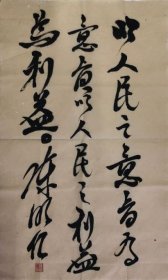 以人民之意旨为
意旨以人民之利益
为利益。陈明仁